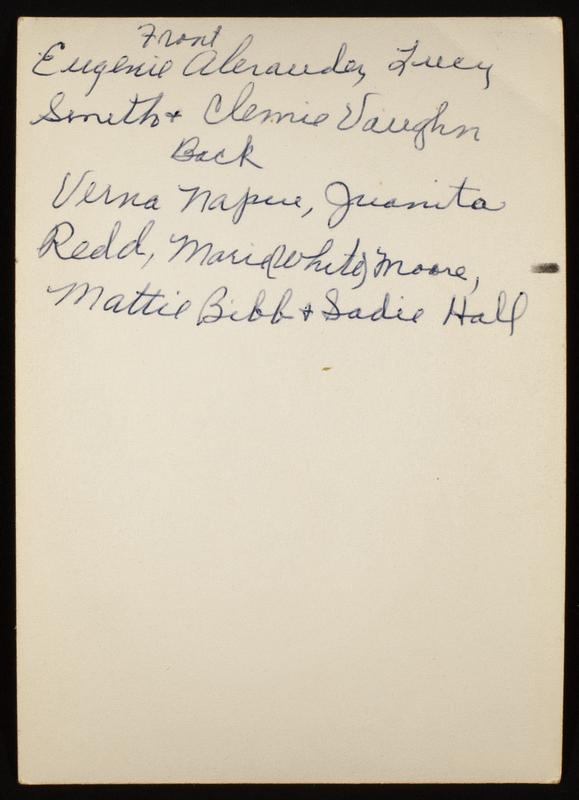 Front
Eugenie Alexander, Lucy
Smith + Clemie Vaughn
Back
Verna Napue, Juanita
Redd, Marie (White) Moore,
Mattie Bibb + Sadie Hall